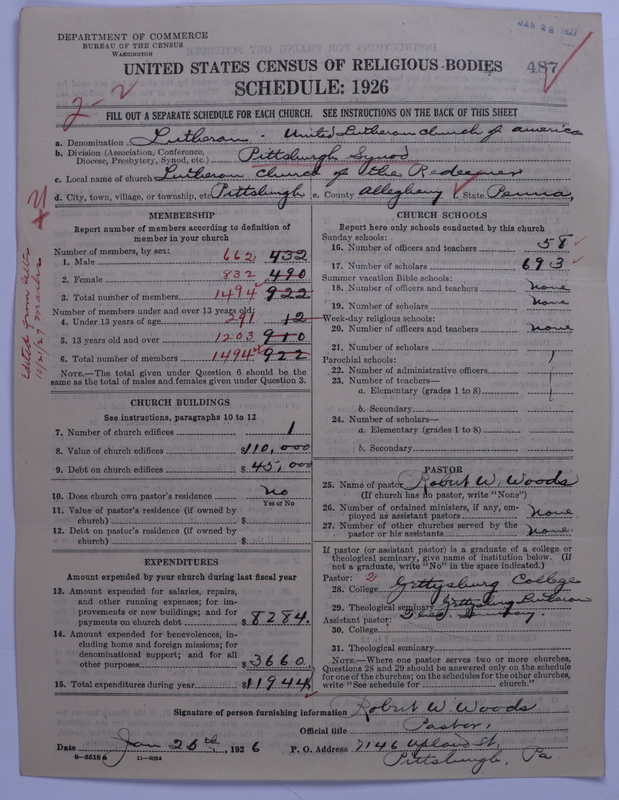 JAN 28 1927
DEPARTMENT OF COMMERCE
BUREAU OF THE CENSUS
WASHINGTON
UNITED STATES CENSUS OF RELIGIOUS BODIES 487
SCHEDULE: 1926
2-2
FILL OUT A SEPARATE SCHEDULE FOR EACH CHURCH. SEE INSTRUCTIONS ON THE BACK OF THIS SHEET
a. Denomination Lutheran - United Lutheran Church of America
b. Division (Association, Conference, Diocese, Presbytery, Synod, etc.) Pittsburgh Synod
c. Local name of church Lutheran Church of the Redeemer
d. City, town, village, or township, etc. Pittsburgh e. County Allegheny f. State Penna.
Edited from letter
MEMBERSHIP
Report number of members according to definition of
member in your church
Number of members, by sex:
1. Male 662 432
2. Female 832 490
3. Total number of members 1494 922
Number of members under and over 13 years old:
4. Under 13 years of age 291 12
5. 13 years old and over 1203 910
6. Total number of members 1494 922
NOTE.—The total given under Question 6 should be the
same as the total of males and females given under Question 3.
CHURCH BUILDINGS
See instructions, paragraphs 10 to 12
7. Number of church edifices 1
8. Value of church edifices $110,000
9. Debt on church edifices $45,000
10. Does church own pastor's residence No
Yes or No
11. Value of pastor's residence (if owned by
church) $
12. Debt on pastor's residence (if owned by
church) $
EXPENDITURES
Amount expended by your church during last fiscal year
13. Amount expended for salaries, repairs,
and other running expenses; for im-
provements or new buildings; and for
payments on church debt $8284.
14. Amount expended for benevolences, in-
cluding home and foreign missions; for
denominational support; and for all
other purposes $3660.
15. Total expenditures during year $11944
CHURCH SCHOOLS
Report here only schools conducted by this church
Sunday schools:
16. Number of officers and teachers 58
17. Number of scholars 693
Summer vacation Bible schools:
18. Number of officers and teachers None
19. Number of scholars None
Week-day religious schools:
20. Number of officers and teachers None
21. Number of scholars
Parochial schools:
22. Number of administrative officers
23. Number of teachers—
a. Elementary (grades 1 to 8)
b. Secondary
24. Number of scholars—
a. Elementary (grades 1 to 8)
b. Secondary
PASTOR
25. Name of pastor Robert W. Woods
(If church has no pastor, write "None")
26. Number of ordained ministers, if any, em-
ployed as assistant pastors None
27. Number of other churches served by the
pastor or his assistants None.
If pastor (or assistant pastor) is a graduate of a college or
theological seminary, give name of institution below. (If
not a graduate, write "No" in the space indicated.)
Pastor: 2
28. College Gettysburg College
29. Theological seminary Gettysburg Lutheran
Assistant pastor: Theo.
30. College
31. Theological seminary
NOTE.—Where one pastor serves two or more churches,
Questions 28 and 29 should be answered only on the schedule
for one of the churches; on the schedules for the other churches,
write "See schedule for church."
Signature of person furnishing information Robert W. Woods
Official title Pastor,
Date Jan 26th, 1926 P. O. Address 7146 Upland St,
Pittsburgh, Pa.
8-5519a 11-9064